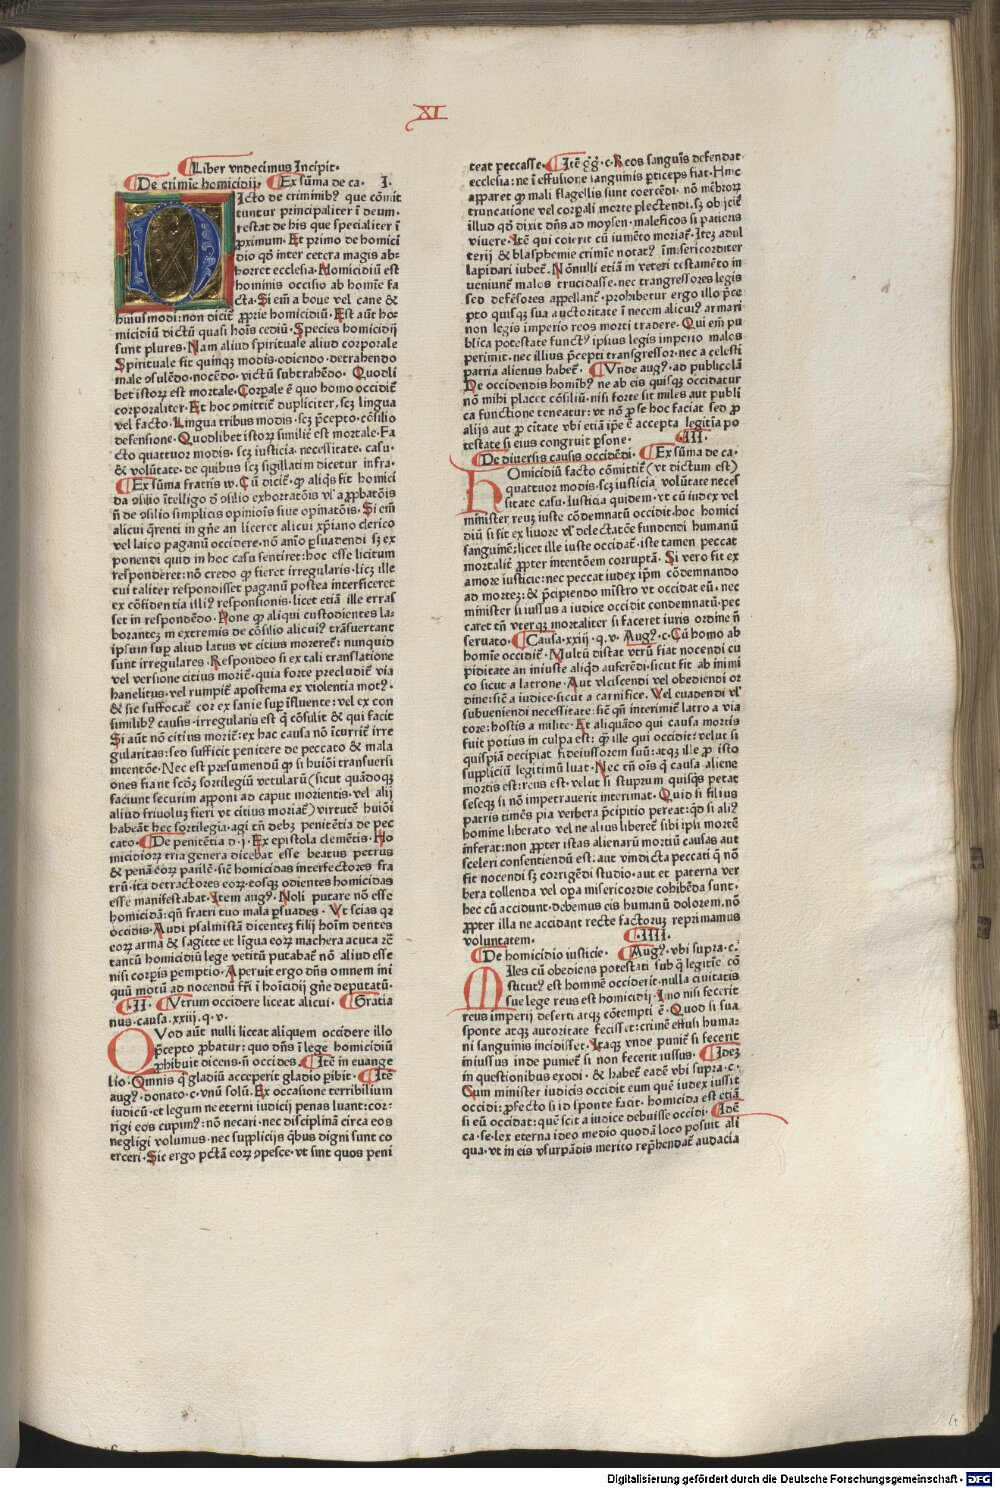 XI
¶Liber vndecimus Incipit.
¶De crimīe homicidij. ¶Ex sūma de ca. I.
DIcto de criminibꝰ que cōmit
tuntur principaliter ī deum.
restat de his que specialiter ī
ꝓximum. Et primo de homici
dio qđ inter cetera magis ab⸗
horret ecclesia. Homicidiū est
hominis occisio ab homīe fa
cta. Si em̄ a boue vel cane &
huiusmodi: non dicit̄ ꝓprie homicidiū. Est aūt ho⸗
micidiū dictū quasi hoīs cediū. Species homicidij
sunt plures. Nam aliud spirituale aliud corporale
Spirituale fit quinqꝫ modis. odiendo. detrahendo
male ɔsulēdo. nocēdo. victū subtrahēdo. Quodli
bet istoꝝ est mortale. Corꝑale ē quo homo occidit̄
corporaliter. Et hoc ɔmittit̄ dupliciter, scꝫ lingua
vel facto. Lingua tribus modis. scꝫ p̄cepto. cōsilio
defensione. Quodlibet istoꝝ similit̄ est mortale. Fa
cto quattuor modis. scꝫ iusticia. necessitate. casu.
& volūtate. de quibus scꝫ sigillatim dicetur infra.
¶Ex sūma fratris w. Cū dicit̄. ꝙ aliq̇s fit homici
da ɔsilio ītelligo đ ɔsilio exhortatōis vl̓ aꝓbatōis
n̄ de ɔsilio simplicis opinioīs siue opinatōis. Si em̄
alicui q̄renti in gn̄e an liceret alicui xp̄iano clerico
vel laico paganū occidere. nō anīo ꝑsuadendi sꝫ ex
ponendi quid in hoc casu sentiret: hoc esse licitum
responderet: nō credo ꝙ fieret irregularis. licꝫ ille
cui taliter respondisset paganū postea interficeret
ex cōfidentia illiꝰ responsionis. licet etiā ille erras
set in respondēdo. Pone ꝙ aliqui custodientes la⸗
borantes in extremis de cōsilio alicuiꝰ trāsuertant
ipsum suꝑ aliud latus vt citius moreret̄: nunquid
sunt irregulares. Respondeo si ex tali translatione
vel versione citius morit̄. quia forte precludit̄ via
hanelitus. vel rumpit̄ apostema ex violentia motꝰ.
& sic suffocat̄ cor ex sanie suꝑ īfluente: vel ex con
similibꝰ causis. irregularis est q̇ cōsilit̄ & qui facit
Si aūt nō citius morit̄: ex hac causa nō īcurrit̄ irre
gularitas: sed sufficit penitere de peccato & mala
intentōe. Nec est presumendū ꝙ si huiōi transuersi
ones fiant scđꝫ sortilegiū vetularū (sicut quādoqꝫ
faciunt securim apponi ad caput morientis. vel alij
aliud friuoluꝫ fieri vt citius moriat̄) virtutē huiōi
habeāt hec sortilegia. agi tn̄ debꝫ penitētia de pec
cato. ¶De penitētia d.j. Ex epistola clemētis. Ho
micidioꝝ tria genera dicebat esse beatus petrus
& penā eoꝝ parilē. sic̄ homicidas interfectores fra
trū. ita detractores eoꝝ. eosqꝫ odientes homicidas
esse manifestabat. Item augꝰ. Noli putare nō esse
homicidā: qn̄ fratri tuo mala ꝑsuades. Vt scias qꝛ
occidis. Audi psalmistā dicenteꝫ filij hoīm dentes
eoꝝ arma & sagitte et līgua eoꝝ machera acuta rē
tantū homicidiū lege vetitū putabat̄ nō aliud esse
nisi corꝑis ꝑemptio. Aperuit ergo dn̄s omnem ini
quū motū ad nocendū fr̄i ī hoīcidij gn̄e deputatū.
¶.II. ¶Vtrum occidere liceat alicui. ¶Gratia
nus. causa. xxiij. q. v.
QVod aūt nulli liceat aliquem occidere illo
p̄cepto ꝓbatur: quo dn̄s ī lege homicidiū
ꝓhibuit dicens. n̄ occides. ¶Itē in euange
lio. Omnis q̇ gladiū acceperit gladio ꝑibit. ¶Itē
augꝰ. donato. c. vnū solū. Ex occasione terribilium
iudicū. et legum ne eterni iudicij penas luant: cor⸗
rigi eos cupimꝰ: nō necari. nec disciplinā circa eos
negligi volumus. nec supplicijs q̇bus digni sunt co
erceri. Sic ergo pctā eoꝝ ɔpesce. vt sint quos peni
teat peccasse. ¶Itē g̃g̃. c. Reos sanguīs defendat
ecclesia: ne ī effusione sanguinis ꝑticeps fiat. Hinc
apparet ꝙ mali flagellis sunt coercēdi. nō mēbroꝝ
truncatione vel corꝑali morte plectendi. sꝫ obijcit̄
illud qđ dixit dn̄s ad moysen. maleficos si patieris
vivere. Itē qui coierit cū iumēto moriat̄. Iteꝫ adul
terij & blasphemie crimīe notatꝰ īmisericorditer
lapidari iubet̄. Nōnulli etiā in veteri testamēto in
ueniunt̄ malos trucidasse. nec trangressores legis
sed defēsores appellant̄. prohibetur ergo illo p̄ce
pto quisqꝫ sua auctoritate ī necem alicuiꝰ armari
non legis imperio reos morti tradere. Qui em̄ pu
blica potestate functꝰ ipsius legis imperio malos
perimit. nec illius p̄cepti transgressor. nec a celesti
patria alienus habet̄. ¶Vnde augꝰ. ad publicolā
De occidendis homībꝰ ne ab eis quisqꝫ occidatur
nō mihi placet cōsiliū. nisi forte sit miles aut publi
ca functione teneatur: vt nō ꝓ se hoc faciat sed ꝓ
alijs aut ꝓ ciuitate vbi etiā ip̄e ē accepta legitīa po
testate si eius congruit ꝑsone. ¶.III.
¶De diuersis causis occidēdi. ¶Ex sūma de ca.
HOmicidiū facto cōmittit̄ (vt dictum est)
quattuor modis. scꝫ iusticia volūtate neces
sitate casu. Iusticia quidem. vt cū iudex vel
minister reuꝫ iuste cōdemnatū occidit. hoc homici
diū si fit ex liuore vl̓ delectatōe fundendi humanū
sanguinē; licet ille iuste occidat̄. iste tamen peccat
mortalit̄ ꝓpter intentōem corruptā. Si vero fit ex
amore iusticie: nec peccat iudex ip̄m cōdemnando
ad morteꝫ: & p̄cipiendo mīstro vt occidat eū. nec
minister si iussus a iudice occidit condemnatū. pec
caret tn̄ vterqꝫ mortaliter si faceret iuris ordine n̄
seruato. ¶Causa. xxiij. q. v. Augꝰ. c. Cū homo ab
homīe occidit̄. Multū distat vtrū fiat nocendi cu
piditate an iniuste aliq̇d auferēdi. sicut fit ab inimi
co sicut a latrone. Aut vlciscendi vel obediendi or
dine: sic̄ a iudice. sicut a carnifice. Vel euadendi vl̓
subueniendi necessitate: sic̄ qn̄ interimit̄ latro a via
tore: hostis a milite. Et aliquādo qui causa mortis
fuit potius in culpa est: ꝙ ille qui occidit: velut si
quispiā decipiat fideiussorem suū: atqꝫ ille ꝓ isto
suppliciū legitimū luat. Nec tn̄ oīs q̇ causa aliene
mortis est: reus est. velut si stuprum quisq̇s petat
seseqꝫ si nō impetrauerit interimat. Quid si filius
patris timēs pia verbera p̄cipitio pereat: q̇d si aliꝰ
homine liberato vel ne alius liberet̄ sibi ipsi mortē
inferat: non ꝓpter istas alienarū mortiū causas aut
sceleri consentiendū est: aut vindicta peccati q̄ nō
fit nocendi sꝫ corrigēdi studio. aut et paterna ver
bera tollenda vel oꝑa misericordie cohibēda sunt.
hec cū accidunt. debemus eis humanū dolorem. nō
ꝓpter illa ne accidant recte factoruꝫ reprimamus
voluntatem. ¶.IIII.
¶De homicidio iusticie. ¶Augꝰ. vbi supra. c.
MIles cū obediens potestati sub q̄ legitīe cō
stitutꝰ est hominē occiderit. nulla ciuitatis
sue lege reus est homicidij. Imo nisi fecerit
reus imperij deserti atqꝫ cōtempti ē. Quod si sua
sponte atqꝫ autoritate fecisset: crimē effusi huma⸗
ni sanguinis incidisset. Itaqꝫ vnde punit̄ si fecerit
iniussus inde puniet̄ si non fecerit iussus. ¶Ideꝫ
in questionibus exodi. & habet̄ eadē vbi supra. c.
Cum minister iudicis occidit eum quē iudex iussit
occidi: ꝓfecto si id sponte facit. homicida est etiā
si eū occidat: quē scit a iudice debuisse occidi. ¶Idē
ca. se. lex eterna ideo medio quodā loco posuit ali
qua. vt in eis vsurpādis merito rep̄hendat̄ audacia
Digitalisierung gefördert durch die Deutsche Forschungsgemeinschaft - DFG